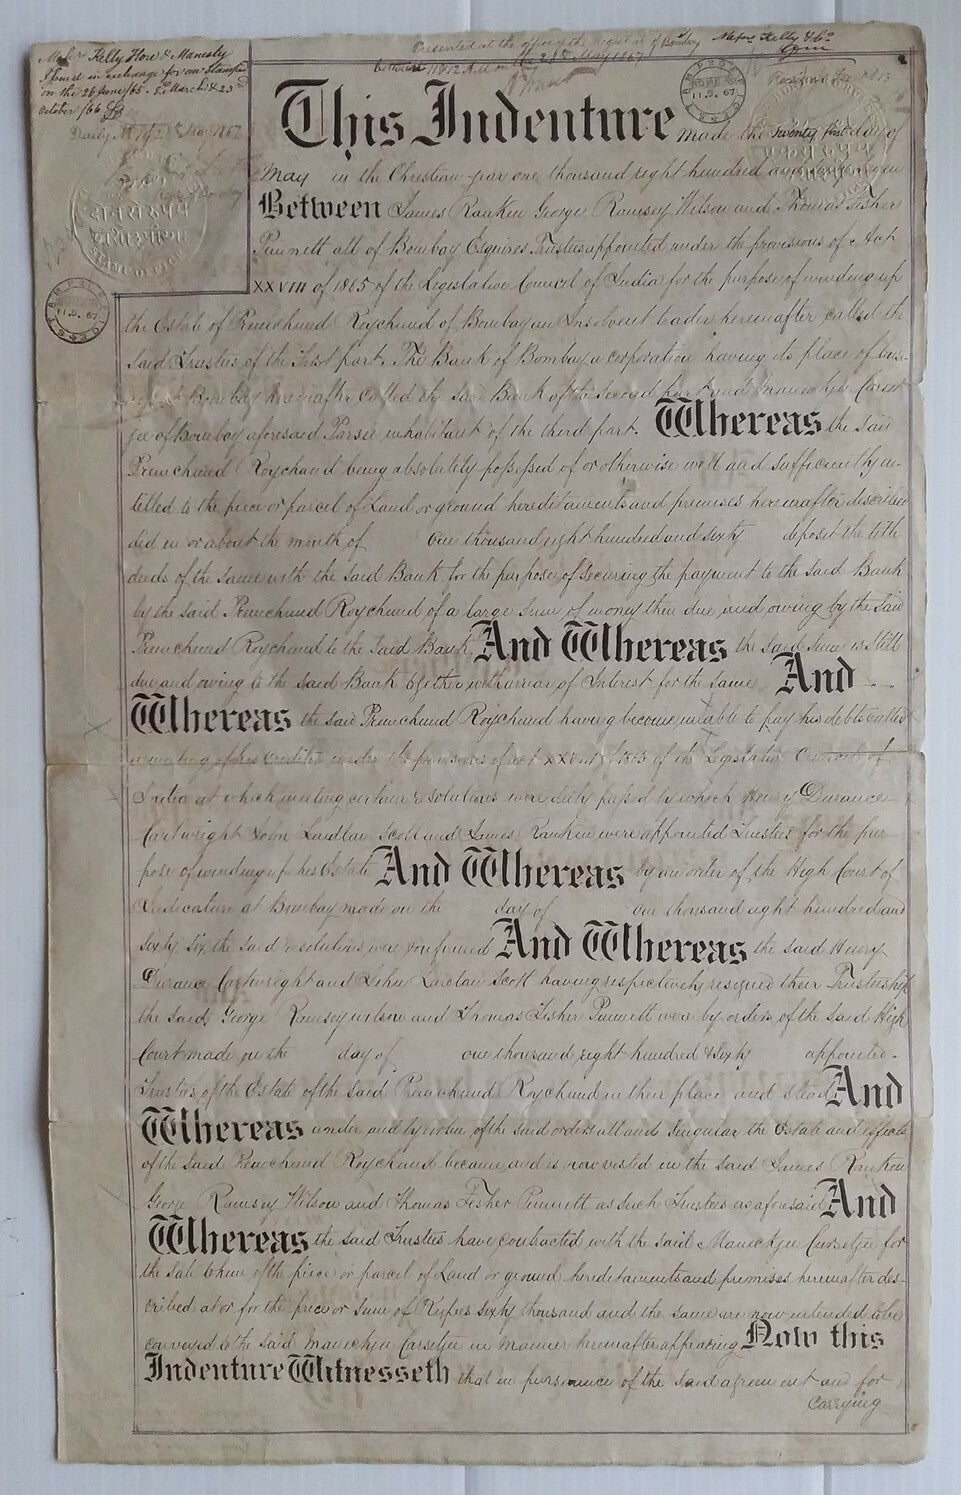 Kelly Hore & Manesty
in exchange for
on the 26 June/65. 8th March & 23rd
October /66
Presented at the office of the Registrar of Bombay
between 11 & 12 A.M. on the 28th May 1867
Messrs Kelly & Co
11.5.67
11.5.67
दोन से रुपय
This Indenture made the twenty first day of
May in the Christian year one thousand eight hundred and sixty seven
Between James Rankin George Ramsey Wilson and Thomas Fisher
Punnett all of Bombay Esquires Trustees appointed under the provisions of Act
XXVIII of 1865 of the Legislative Council of India for the purpose of winding up
the Estate of Premchund Roychund of Bombay an Insolvent trader hereinafter called the
said Trustees of the First part. The Bank of Bombay a corporation having its place of busi-
Bombay hereinafter called the said Bank of the Second part and Manockjee Carset-
jee of Bombay aforesaid Parsee inhabitant of the third part. Whereas the said
Premchund Roychund being absolutely possessed of or otherwise well and sufficiently in-
titled to the piece or parcel of Land or ground hereditaments and premises hereinafter described
did in or about the month of one thousand eight hundred and sixty deposit the title
deeds of the same with the said Bank for the purpose of securing the payment to the said Bank
by the said Premchund Roychund of a large sum of money then due and owing by the said
Premchund Roychund to the said Bank And Whereas the said sum is still
due and owing to the said Bank together with arrear of Interest for the same And
Whereas the said Premchund Roychund having become unable to pay his debts called
a meeting of his Creditors under the provisions of act XXVIII of 1865 of the Legislative Council of
India at which meeting certain resolutions were duly passed by which Henry Durance
Cartwright John Laidlaw Scott and James Rankin were appointed Trustees for the pur-
pose of winding up his Estate And Whereas by an order of the High Court of
Judicature at Bombay made on the day of one thousand eight hundred and
sixty six the said resolutions were confirmed And Whereas the said Henry
Durance Cartwright and John Laidlaw Scott having respectively resigned their Trusteeship
the said George Ramsey Wilson and Thomas Fisher Punnett were by orders of the said High
Court made on the day of one thousand eight hundred & sixty appointed
Trustees of the Estate of the said Premchund Roychund in their place and stead And
Whereas under and by virtue of the said orders all and singular the Estate and effects
of the said Premchund Roychund became and is now vested in the said James Rankin
George Ramsey Wilson and Thomas Fisher Punnett as such Trustees as aforesaid And
Whereas the said Trustees have contracted with the said Manockjee Cursetjee for
the sale to him of the piece or parcel of Land or ground hereditaments and premises hereinafter des-
cribed at or for the price or sum of Rupees sixty thousand and the same are now intended to be
conveyed to the said Manockjee Carsetjee in manner hereinafter appearing Now this
Indenture Witnesseth that in pursuance of the said agreement and for
carrying